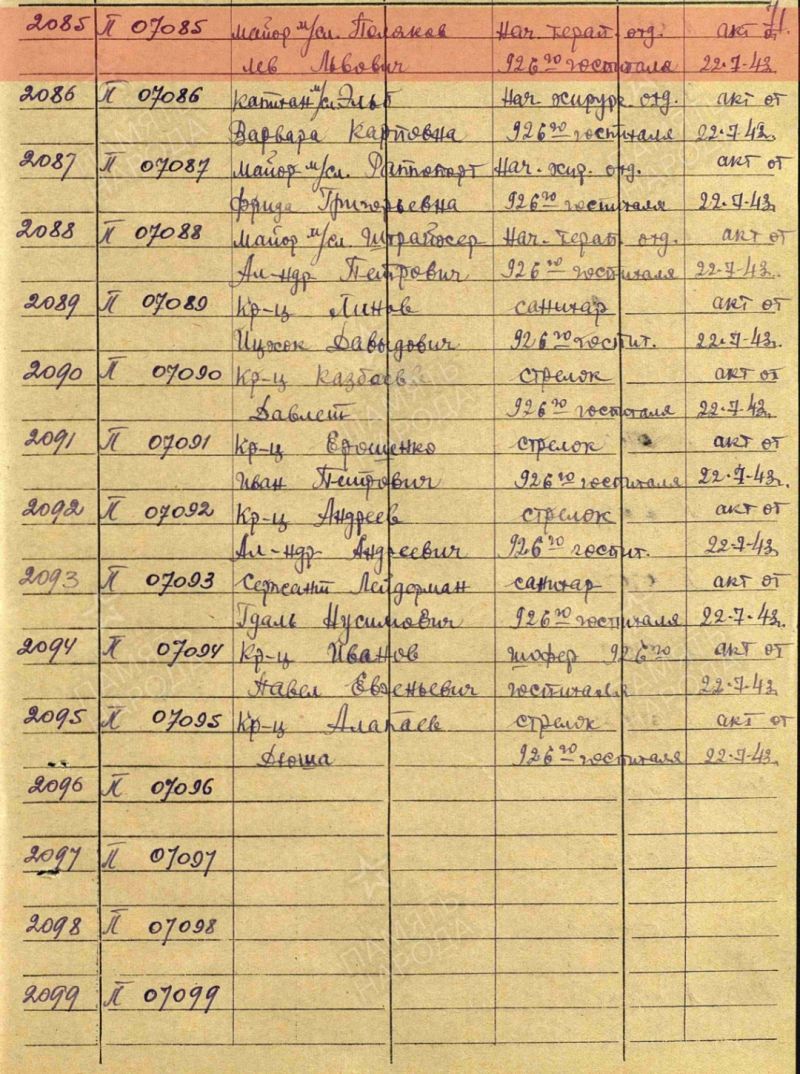 71.
2085 П 07085 майор м/сл. Поляков Нач. терап. отд. акт от
Лев Львович 926го госпиталя 22.7.43.
2086 П 07086 капитан м/сл. Эльт Нач. хирург. отд. акт от
Варвара Карповна 926го госпиталя 22.7.43.
2087 П 07087 майор м/сл. Раппопорт Нач. хир. отд. акт от
Фрида Григорьевна 926го госпиталя 22.7.43.
2088 П 07088 Майор м/сл. Нач. терап. отд. акт от
Ал-ндр Петрович 926го госпиталя 22.7.43.
2089 П 07089 Кр-ц Линов санитар акт от
Ицхок Давыдович 926го госпит. 22.7.43.
2090 П 07090 Кр-ц Казбаев стрелок акт от
Давлет 926го госпиталя 22.7.43.
2091 П 07091 Кр-ц Ерошенко стрелок акт от
Иван Петрович 926го госпиталя 22.7.43.
2092 П 07092 Кр-ц Андреев стрелок акт от
Ал-ндр Андреевич 926го госпит. 22.7.43.
2093 П 07093 Сержант Лейдерман санитар акт от
Гдаль Нусимович 926го госпиталя 22.7.43.
2094 П 07094 Кр-ц Иванов шофер 926го акт от
Павел Евгеньевич госпиталя 22.7.43.
2095 П 07095 Кр-ц Алапаев стрелок акт от
Дюша 926го госпиталя 22.7.43.
2096 П 07096
2097 П 07097
2098 П 07098
2099 П 07099
ПАМЯТЬ НАРОДА